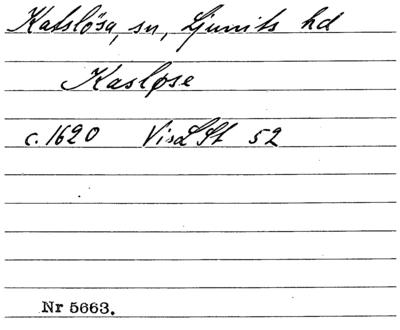 Katslösa, sn, Ljunits hd
Kasløse
c. 1620 VisLSt 52
Nr 5663.